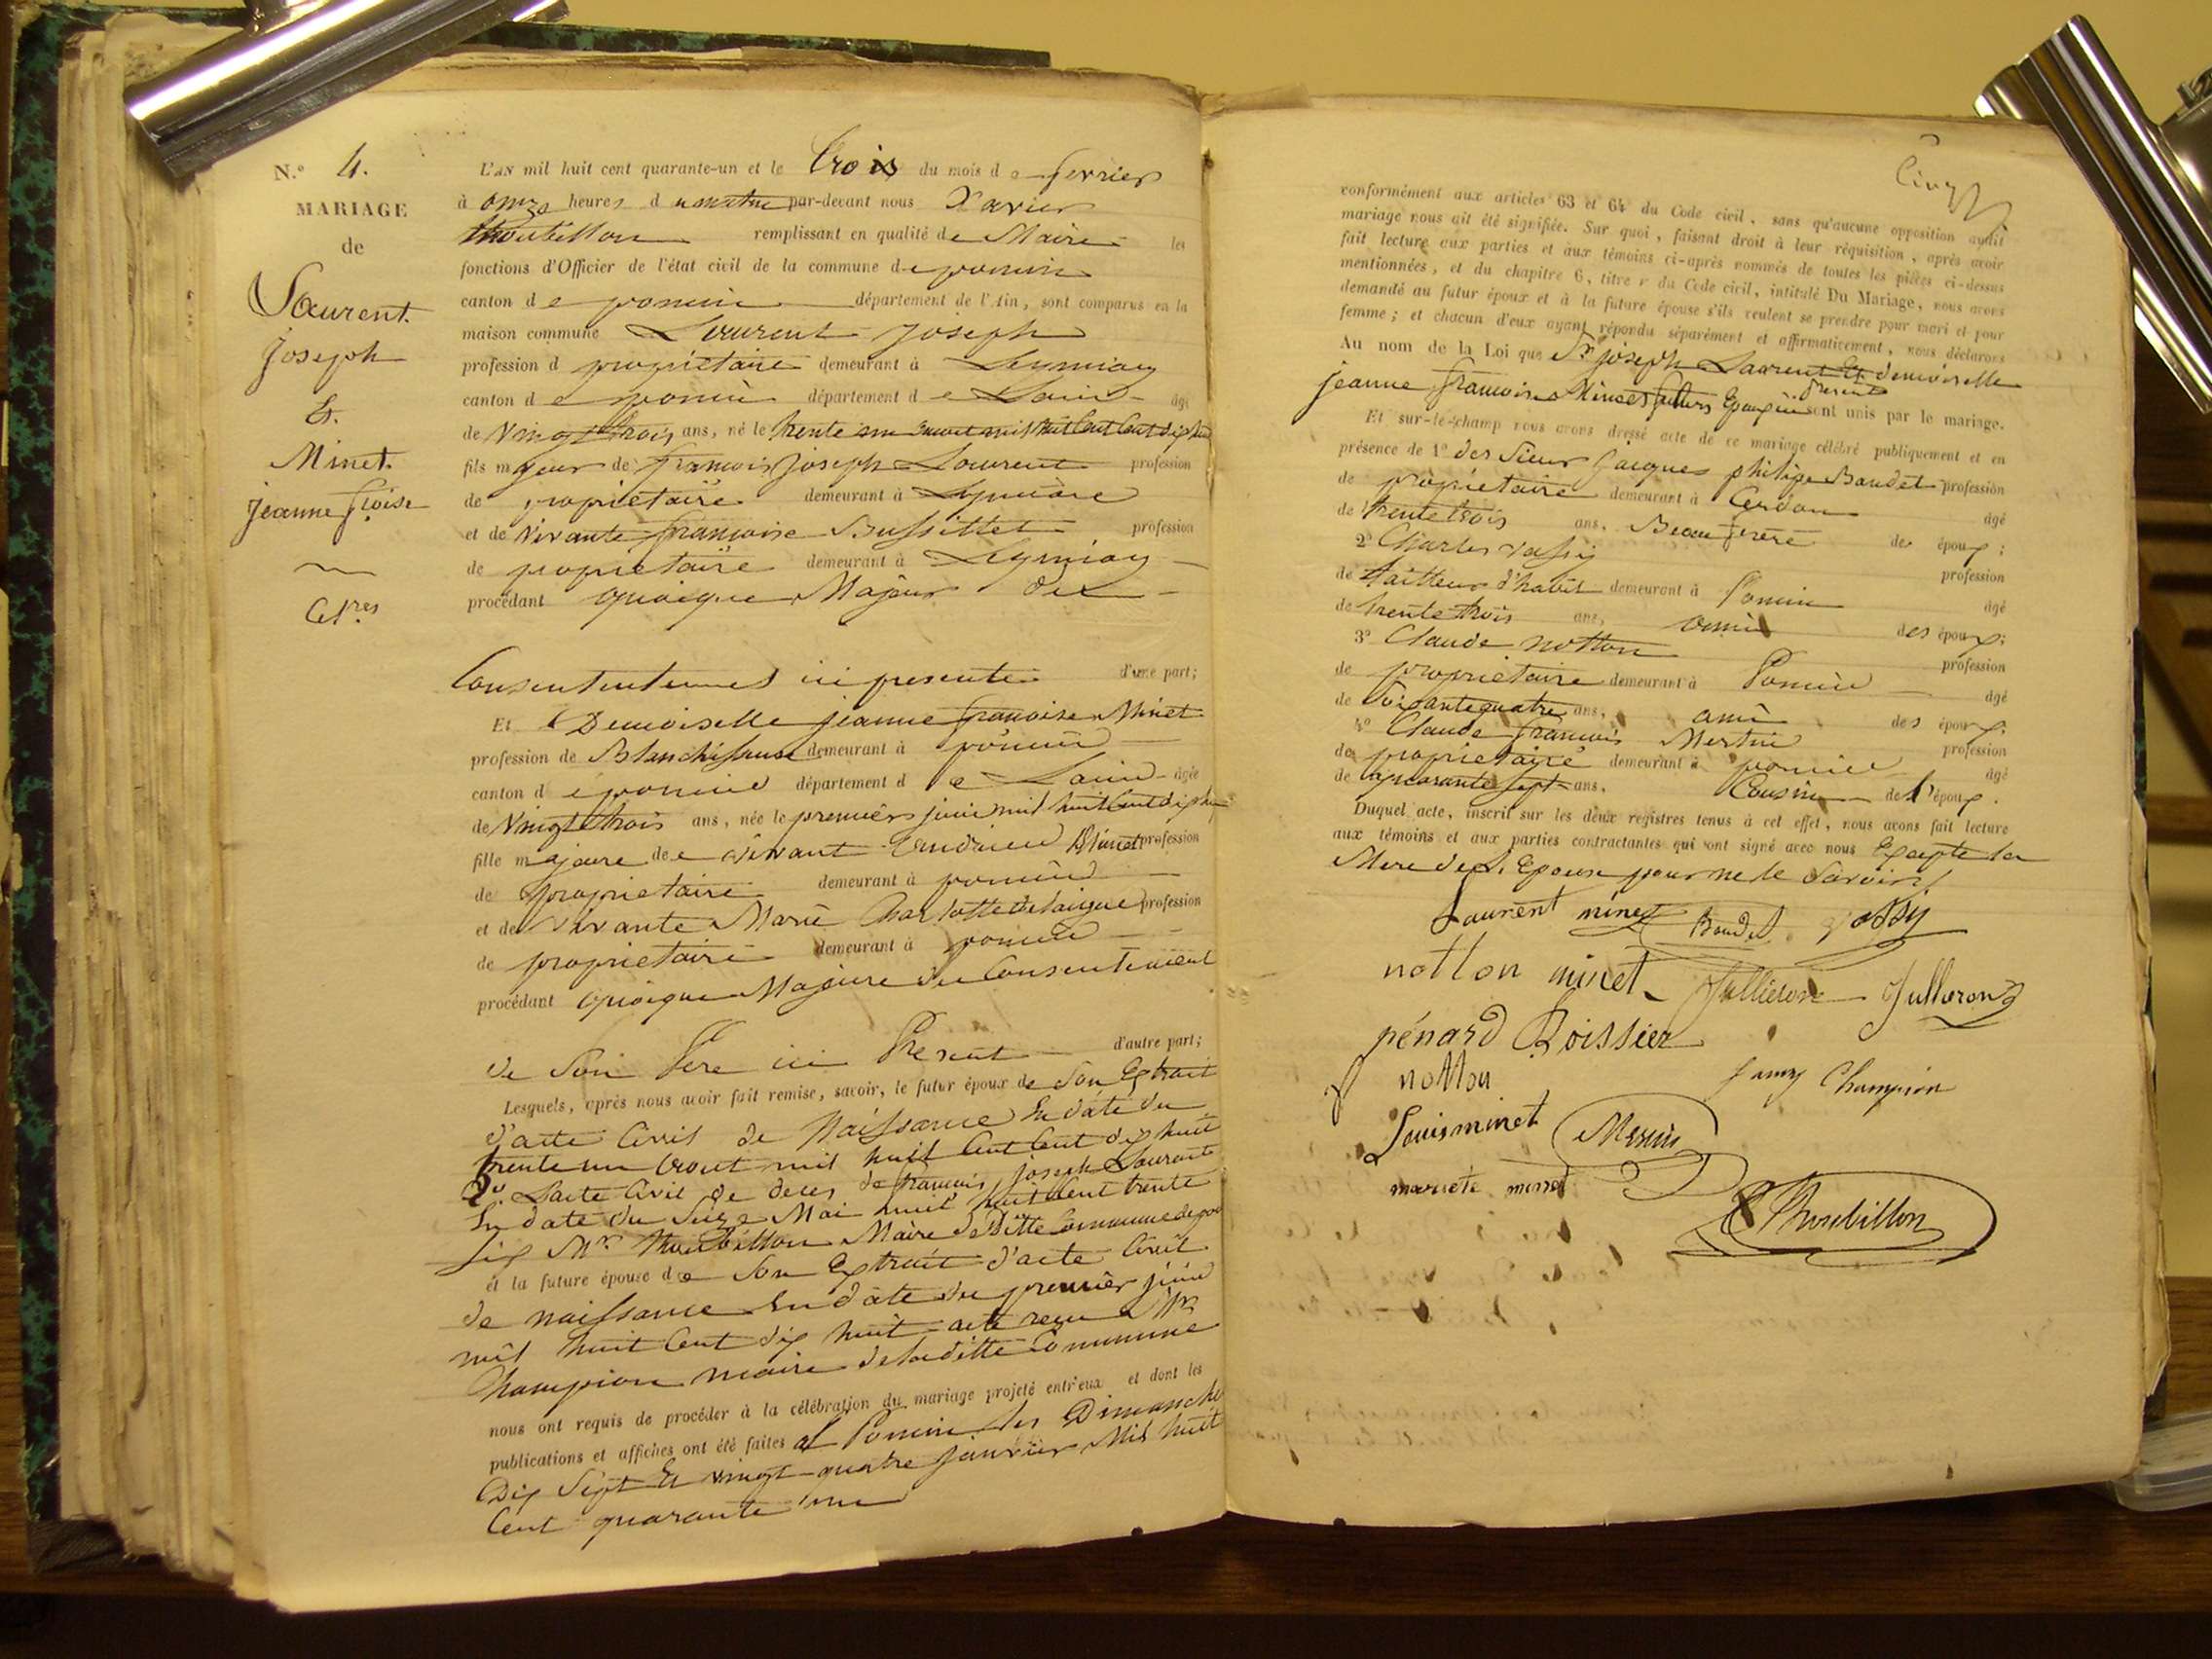 N.º 4.
MARIAGE
de
Laurent
Joseph
Et
Minet
jeanne f.çoise
L'AN mil huit cent quarante-un et le trois du mois de fevrier
à onze heures du matin par-devant nous Xavier
thoubillon remplissant en qualité de Maire les
fonctions d'Officier de l'état civil de la commune de poncin
canton de poncin département de l'Ain, sont comparus en la
maison commune Laurent joseph
profession d propriétaire demeurant à Leymiay
canton de poncin département de Lain âgé
de Vingt trois ans, né le trente un
fils majeur de francois joseph Laurent profession
de propriétaire demeurant à
et de vivante francoise Bussillet profession
de propriétaire demeurant à Leymiay
procédant quoique Majeur du
Consentement ici presente d'une part;
Et Demoiselle jeanne francoise Minet
profession de Blanchisseuse demeurant à poncin
canton de poncin département de Lain âgée
de Vingt trois ans, née le premier juin mil huit Cent dix huit
fille majeure de vivant Minet profession
de propriétaire demeurant à poncin
et de vivante Marie Charlotte profession
de propriétaire demeurant à poncin
procédant quoique Majeure du Consentement
de Son Pere ici Present d'autre part;
Lesquels, après nous avoir fait remise, savoir, le futur époux de Son Extrait
d'acte Civil de Naissance En date du
trente un aout mil huit Cent dix huit
2º. Lacte Civil de deces de francois joseph Laurent
En date du Seize Mai mil huit Cent trente
Six Mr. thoubillon Maire de Ditte Commune de pon
et la future épouse de Son Extrait d'acte Civil
de naissance En date du premier juin
mil huit Cent dix huit acte reçu Mr
Champion maire de laditte Commune
nous ont requis de procéder à la célébration du mariage projeté entr'eux et dont les
publications et affiches ont été faites a Poncin les Dimanche
Dix Sept Et vingt quatre janvier Mil huit
Cent quarante un
Cinq
conformément aux articles 63 et 64 du Code civil, sans qu'aucune opposition audit
mariage nous ait été signifiée. Sur quoi, faisant droit à leur réquisition, après avoir
fait lecture aux parties et aux témoins ci-après nommés de toutes les pièces ci-dessus
mentionnées, et du chapitre 6, titre v du Code civil, intitulé Du Mariage, nous avons
demandé au futur époux et à la future épouse s'ils veulent se prendre pour mari et pour
femme; et chacun d'eux ayant répondu séparément et affirmativement, nous déclarons
Au nom de la Loi que Sr joseph Laurent Et demoiselle
jeanne francoise Minet futurs Epoux sont unis par le mariage.
Et sur-le-champ nous avons dressé acte de ce mariage célébré publiquement et en
présence de 1º des Sieur jacques philipe Baudet profession
de propriétaire demeurant à Cerdon âgé
de trente trois ans, Beau frere de époux;
2º Charles vassy profession
de tailleur d'habit demeurant à Poncin âgé
de trente trois ans, ami des époux;
3º Claude notton profession
de propriétaire demeurant à Poncin âgé
de Soixante quatre ans, ami des époux.
4º Claude francois Mermin profession
de propriétaire demeurant à poncin âgé
de quarante sept ans, Cousin de l'époux.
Duquel acte, inscrit sur les deux registres tenus à cet effet, nous avons fait lecture
aux témoins et aux parties contractantes qui ont signé avec nous Excepte la
Mere de L'Epouse pour ne le Savoir
Laurent minet Baudet vassy
notton minet Jullieron Julleron
pénard Roissier
notton fanny Champion
Louis minet Mermin
mariéte minet
Thoubillon